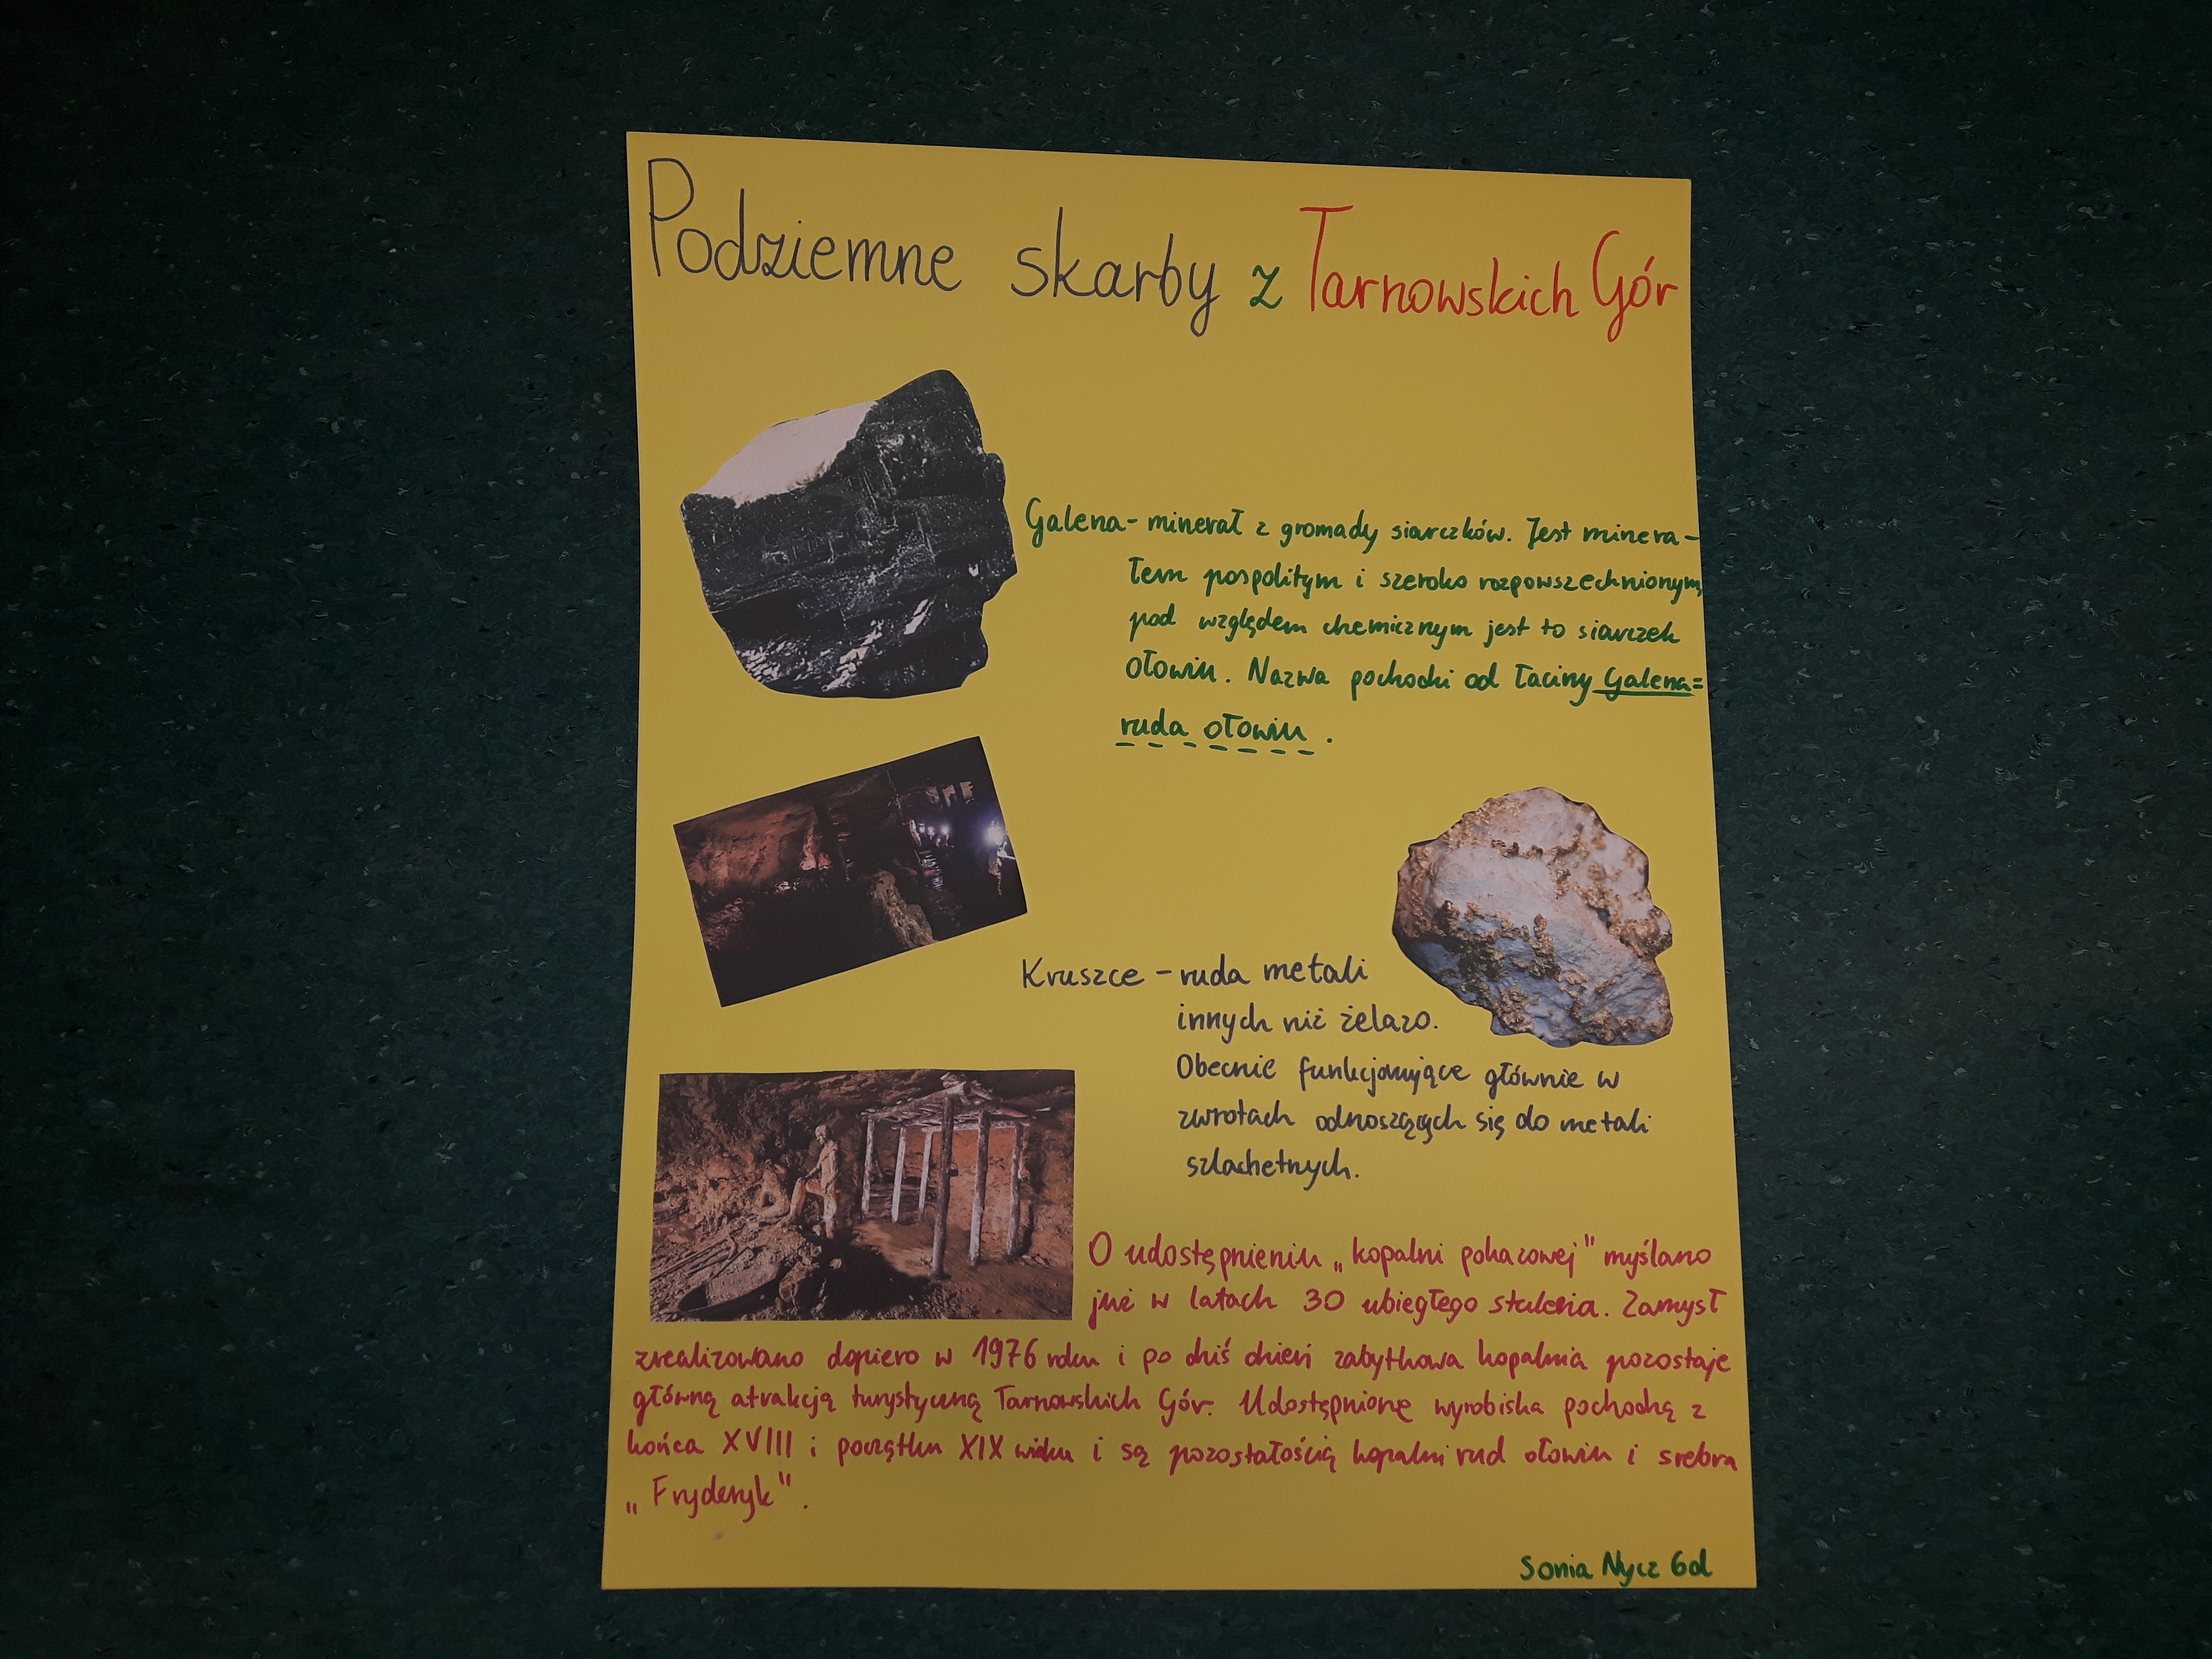 Podziemne skarby z Tarnowskich Gór
Galena - minerał z gromady siarczków. Jest minera-
łem pospolitym i szeroko rozpowszechnionym,
pod względem chemicznym jest to siarczek
ołowiu. Nazwa pochodzi od łaciny Galena=
ruda ołowiu.
Kruszce - ruda metali
innych niż żelazo.
Obecnie funkcjonujące głównie w
zwrotach odnoszących się do metali
szlachetnych.
O udostępnieniu „kopalni pokazowej" myślano
już w latach 30 ubiegłego stulecia. Zamysł
zrealizowano dopiero w 1976 roku i po dziś dzień zabytkowa kopalnia pozostaje
główną atrakcją turystyczną Tarnowskich Gór. Udostępnione wyrobiska pochodzą z
końca XVIII i początku XIX wieku i są pozostałością kopalni rud ołowiu i srebra
„Fryderyk".
Sonia Nycz 6d